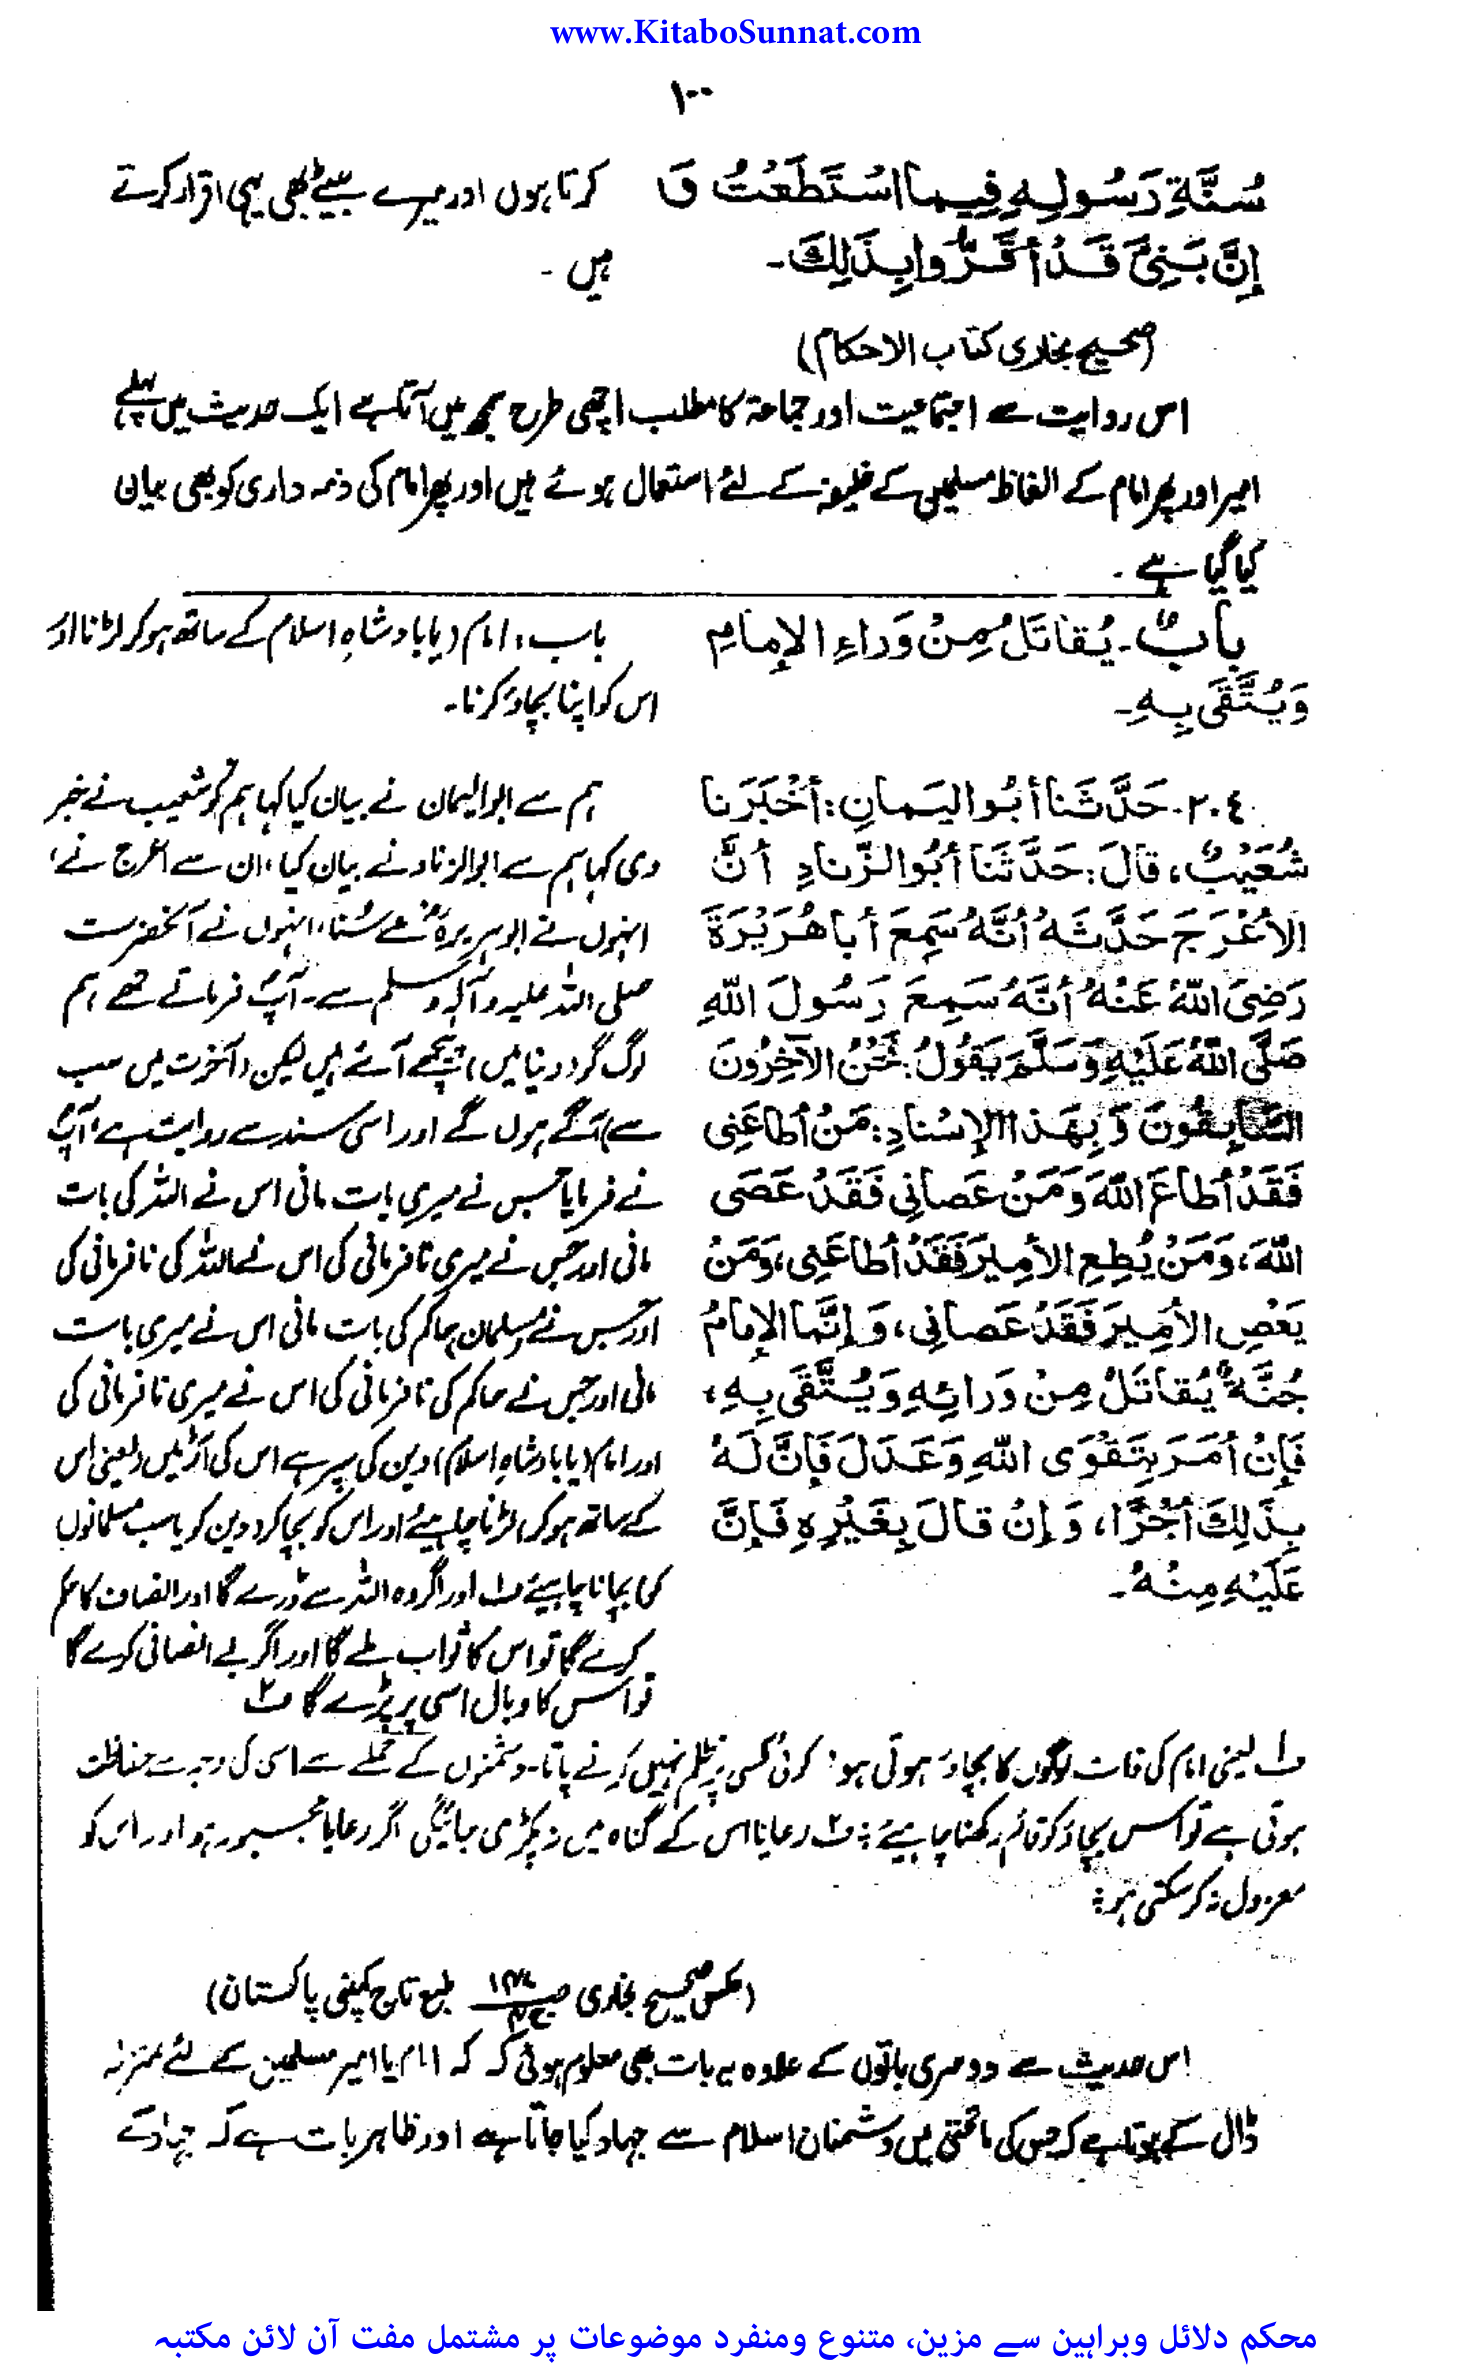 www.KitaboSunnat.com
۱۰۰
سُنَّةِ رَسُولِهِ فِيمَا اسْتَطَعْتُ وَ
إِنَّ بَنِيَّ قَدْ أَقَرُّوا بِذَلِكَ۔
کرتا ہوں اور میرے بیٹے بھی یہی اقرار کرتے
ہیں ۔
(صحیح بخاری کتاب الاحکام)
اس روایت سے اجتماعیت اور جماعۃ کا مطلب اچھی طرح سمجھ میں آتا ہے ایک حدیث میں پہلے
امیر اور پھر امام کے الفاظ مسلمین کے خلیفہ کے لئے استعمال ہوئے ہیں اور پھر امام کی ذمہ داری کو بھی بیان
کیا گیا ہے ۔
بابٌ۔ يُقَاتَلُ مِنْ وَرَاءِ الإِمَامِ
وَيُتَّقَى بِهِ۔
باب: امام (یا بادشاہِ اسلام کے ساتھ ہو کر لڑنا اور
اس کو اپنا بچاؤ کرنا۔
٢٠٤۔ حَدَّثَنَا أَبُو الْيَمَانِ: أَخْبَرَنَا
شُعَيْبٌ، قَالَ: حَدَّثَنَا أَبُو الزِّنَادِ أَنَّ
الأَعْرَجَ حَدَّثَهُ أَنَّهُ سَمِعَ أَبَا هُرَيْرَةَ
رَضِيَ اللّٰهُ عَنْهُ أَنَّهُ سَمِعَ رَسُولَ اللّٰهِ
صَلَّى اللّٰهُ عَلَيْهِ وَسَلَّمَ يَقُولُ: نَحْنُ الآخِرُونَ
السَّابِقُونَ وَبِهَذَا الإِسْنَادِ: مَنْ أَطَاعَنِي
فَقَدْ أَطَاعَ اللّٰهَ وَمَنْ عَصَانِي فَقَدْ عَصَى
اللّٰهَ، وَمَنْ يُطِعِ الأَمِيرَ فَقَدْ أَطَاعَنِي، وَمَنْ
يَعْصِ الأَمِيرَ فَقَدْ عَصَانِي، وَإِنَّمَا الإِمَامُ
جُنَّةٌ يُقَاتَلُ مِنْ وَرَائِهِ وَيُتَّقَى بِهِ،
فَإِنْ أَمَرَ بِتَقْوَى اللّٰهِ وَعَدَلَ فَإِنَّ لَهُ
بِذَلِكَ أَجْرًا، وَإِنْ قَالَ بِغَيْرِهِ فَإِنَّ
عَلَيْهِ مِنْهُ۔
ہم سے ابوالیمان نے بیان کیا کہا ہم کو شعیب نے خبر
دی کہا ہم سے ابوالزناد نے بیان کیا، ان سے اعرج نے،
انہوں نے ابوہریرہؓ سے سُنا، انہوں نے آنحضرت
صلی اللہ علیہ وآلہ وسلم سے۔ آپؐ فرماتے تھے ہم
لوگ گو (دنیا میں) پیچھے آئے ہیں لیکن (آخرت میں سب
سے) آگے ہوں گے اور اسی سند سے روایت ہے، آپؐ
نے فرمایا جس نے میری بات مانی اس نے اللہ کی بات
مانی اور جس نے میری نافرمانی کی اس نے اللہ کی نافرمانی کی
اور جس نے مسلمان حاکم کی بات مانی اس نے میری بات
مانی اور جس نے حاکم کی نافرمانی کی اس نے میری نافرمانی کی
اور امام (یا بادشاہِ اسلام) دین کی سپر ہے اس کی آڑ میں (یعنی اس
کے ساتھ ہو کر) لڑنا چاہیئے اور اس کو بچا کر دین کو یا سب مسلمانوں
کو بچانا چاہیئے ف۱ اور اگر وہ اللہ سے ڈرے گا اور انصاف کا حکم
کرے گا تو اس کا ثواب ملے گا اور اگر بے انصافی کرے گا
تو اس کا وبال اسی پر پڑے گا ف۲
ف۱ یعنی امام کی ذات لوگوں کا بچاؤ ہوتی ہو: کوئی کسی پر ظلم نہیں کرنے پاتا۔ دشمنوں کے حملے سے اسی کی وجہ سے حفاظت
ہوتی ہے تو اس بچاؤ کو قائم رکھنا چاہیئے: ف۲ رعایا اس کے گناہ میں نہ پکڑی جائیگی اگر رعایا مجبور ہو اور اس کو
معزول نہ کر سکتی ہو:
(عکس صحیح بخاری طبع تاج کمپنی پاکستان)
اس حدیث سے دوسری باتوں کے علاوہ یہ بات بھی معلوم ہوئی کہ کہ امام یا امیر مسلمین کے لئے بمنزلہ
ڈال کے ہوتا ہے کہ جس کی ماتحتی میں دشمنان اسلام سے جہاد کیا جاتا ہے اور ظاہر بات ہے کہ جہاد کے
محکم دلائل وبراہین سے مزین، متنوع ومنفرد موضوعات پر مشتمل مفت آن لائن مکتبہ